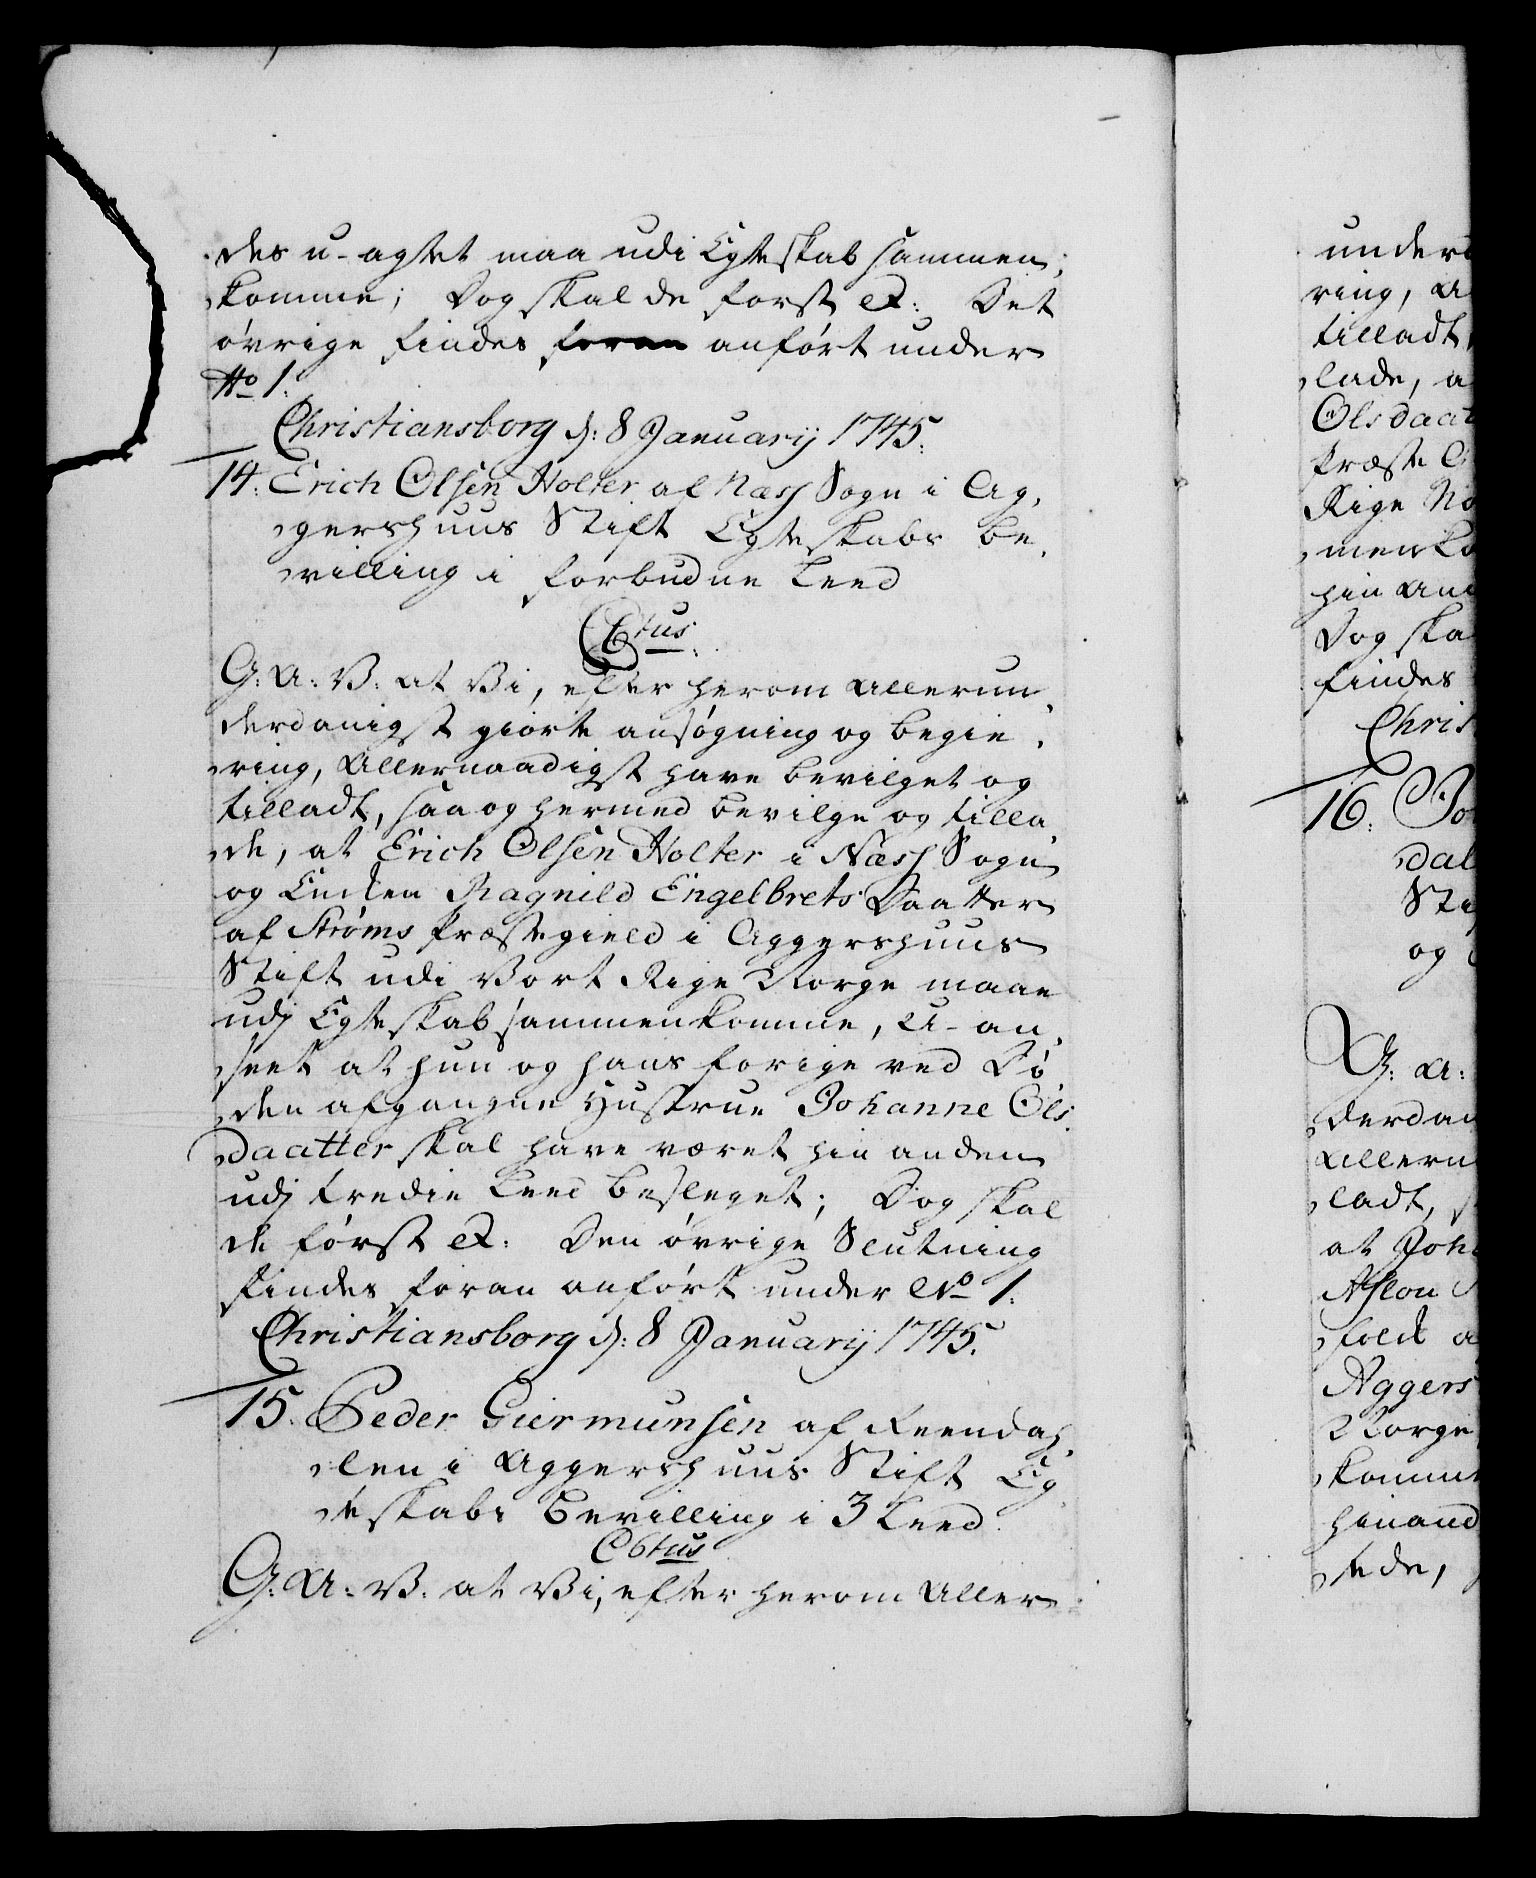 des u-agtet maa udi Egteskab sammen,
komme; Dog skal de først etc: Det
øvrige findes foran anført under
No 1.
Christiansborg d: 8 Januarij 1745.
14. Erich Olsen Holter af Næss Sogn i Ag,
gershuus Stift Egteskabs be,
villing i forbudne Leed
CBtus
G: A: V: at Vi, efter herom allerun,
derdanigst giorte ansøgning og begie,
ring, allernaadigst have bevilget og
tilladt, saa og hermed bevilge og tilla,
de, at Erich Olsen Holter i Næss Sogn
og Enken Ragnild Engelbrets Daatter
af Strøms Præstegield i Aggershuus
Stift udi Vort Rige Norge maae
udj Egteskab sammenkomme, u-an,
seet at hun og hans forige ved Dø
den afgangne Hustrue Johanne Ols,
Daatter skal have været hin anden
udj tredie Leed besleget; Dog skal
de først etc: Den øvrige Slutning
findes foran anført under No 1.
Christiansborg d: 8 Januarij 1745.
15. Peder Giermunsen af Reendah,
len i Aggershuus Stift Eg,
teskabs Bevilling i 3 Leed.
CBtus
G: A: V: at Vi, efter herom aller
under
ring, a
tilladt
lade, a
Olsdaat
Præste
Rige No
menko
hin an
Dog ska
findes
Chris
16. Jo
dal
Sti
og
G: A:
derdan
allern
ladt, s
at Joh
Aslou
fold a
Aggers
Norge
komm
hinand
tede,